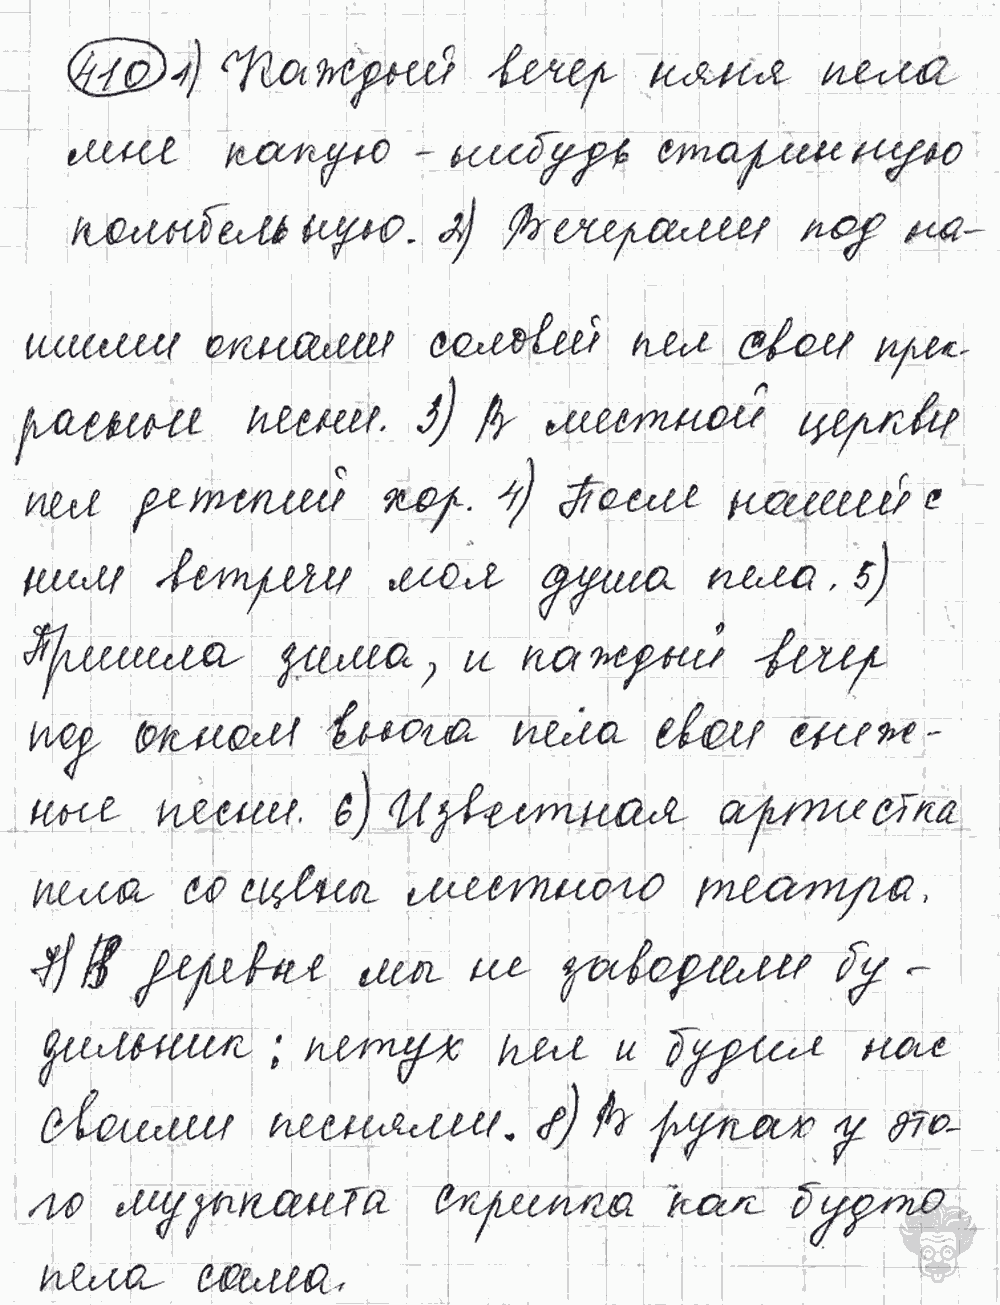 410 1) Каждый вечер няня пела
мне какую-нибудь старинную
колыбельную. 2) Вечерами под на-
шими окнами соловей пел свои прек-
расные песни. 3) В местной церкви
пел детский хор. 4) После нашей с
ним встречи моя душа пела. 5)
Пришла зима, и каждый вечер
под окном вьюга пела свои снеж-
ные песни. 6) Известная артистка
пела со сцены местного театра.
7) В деревне мы не заводили бу-
дильник: петух пел и будил нас
своими песнями. 8) В руках у это-
го музыканта скрипка как будто
пела сама.